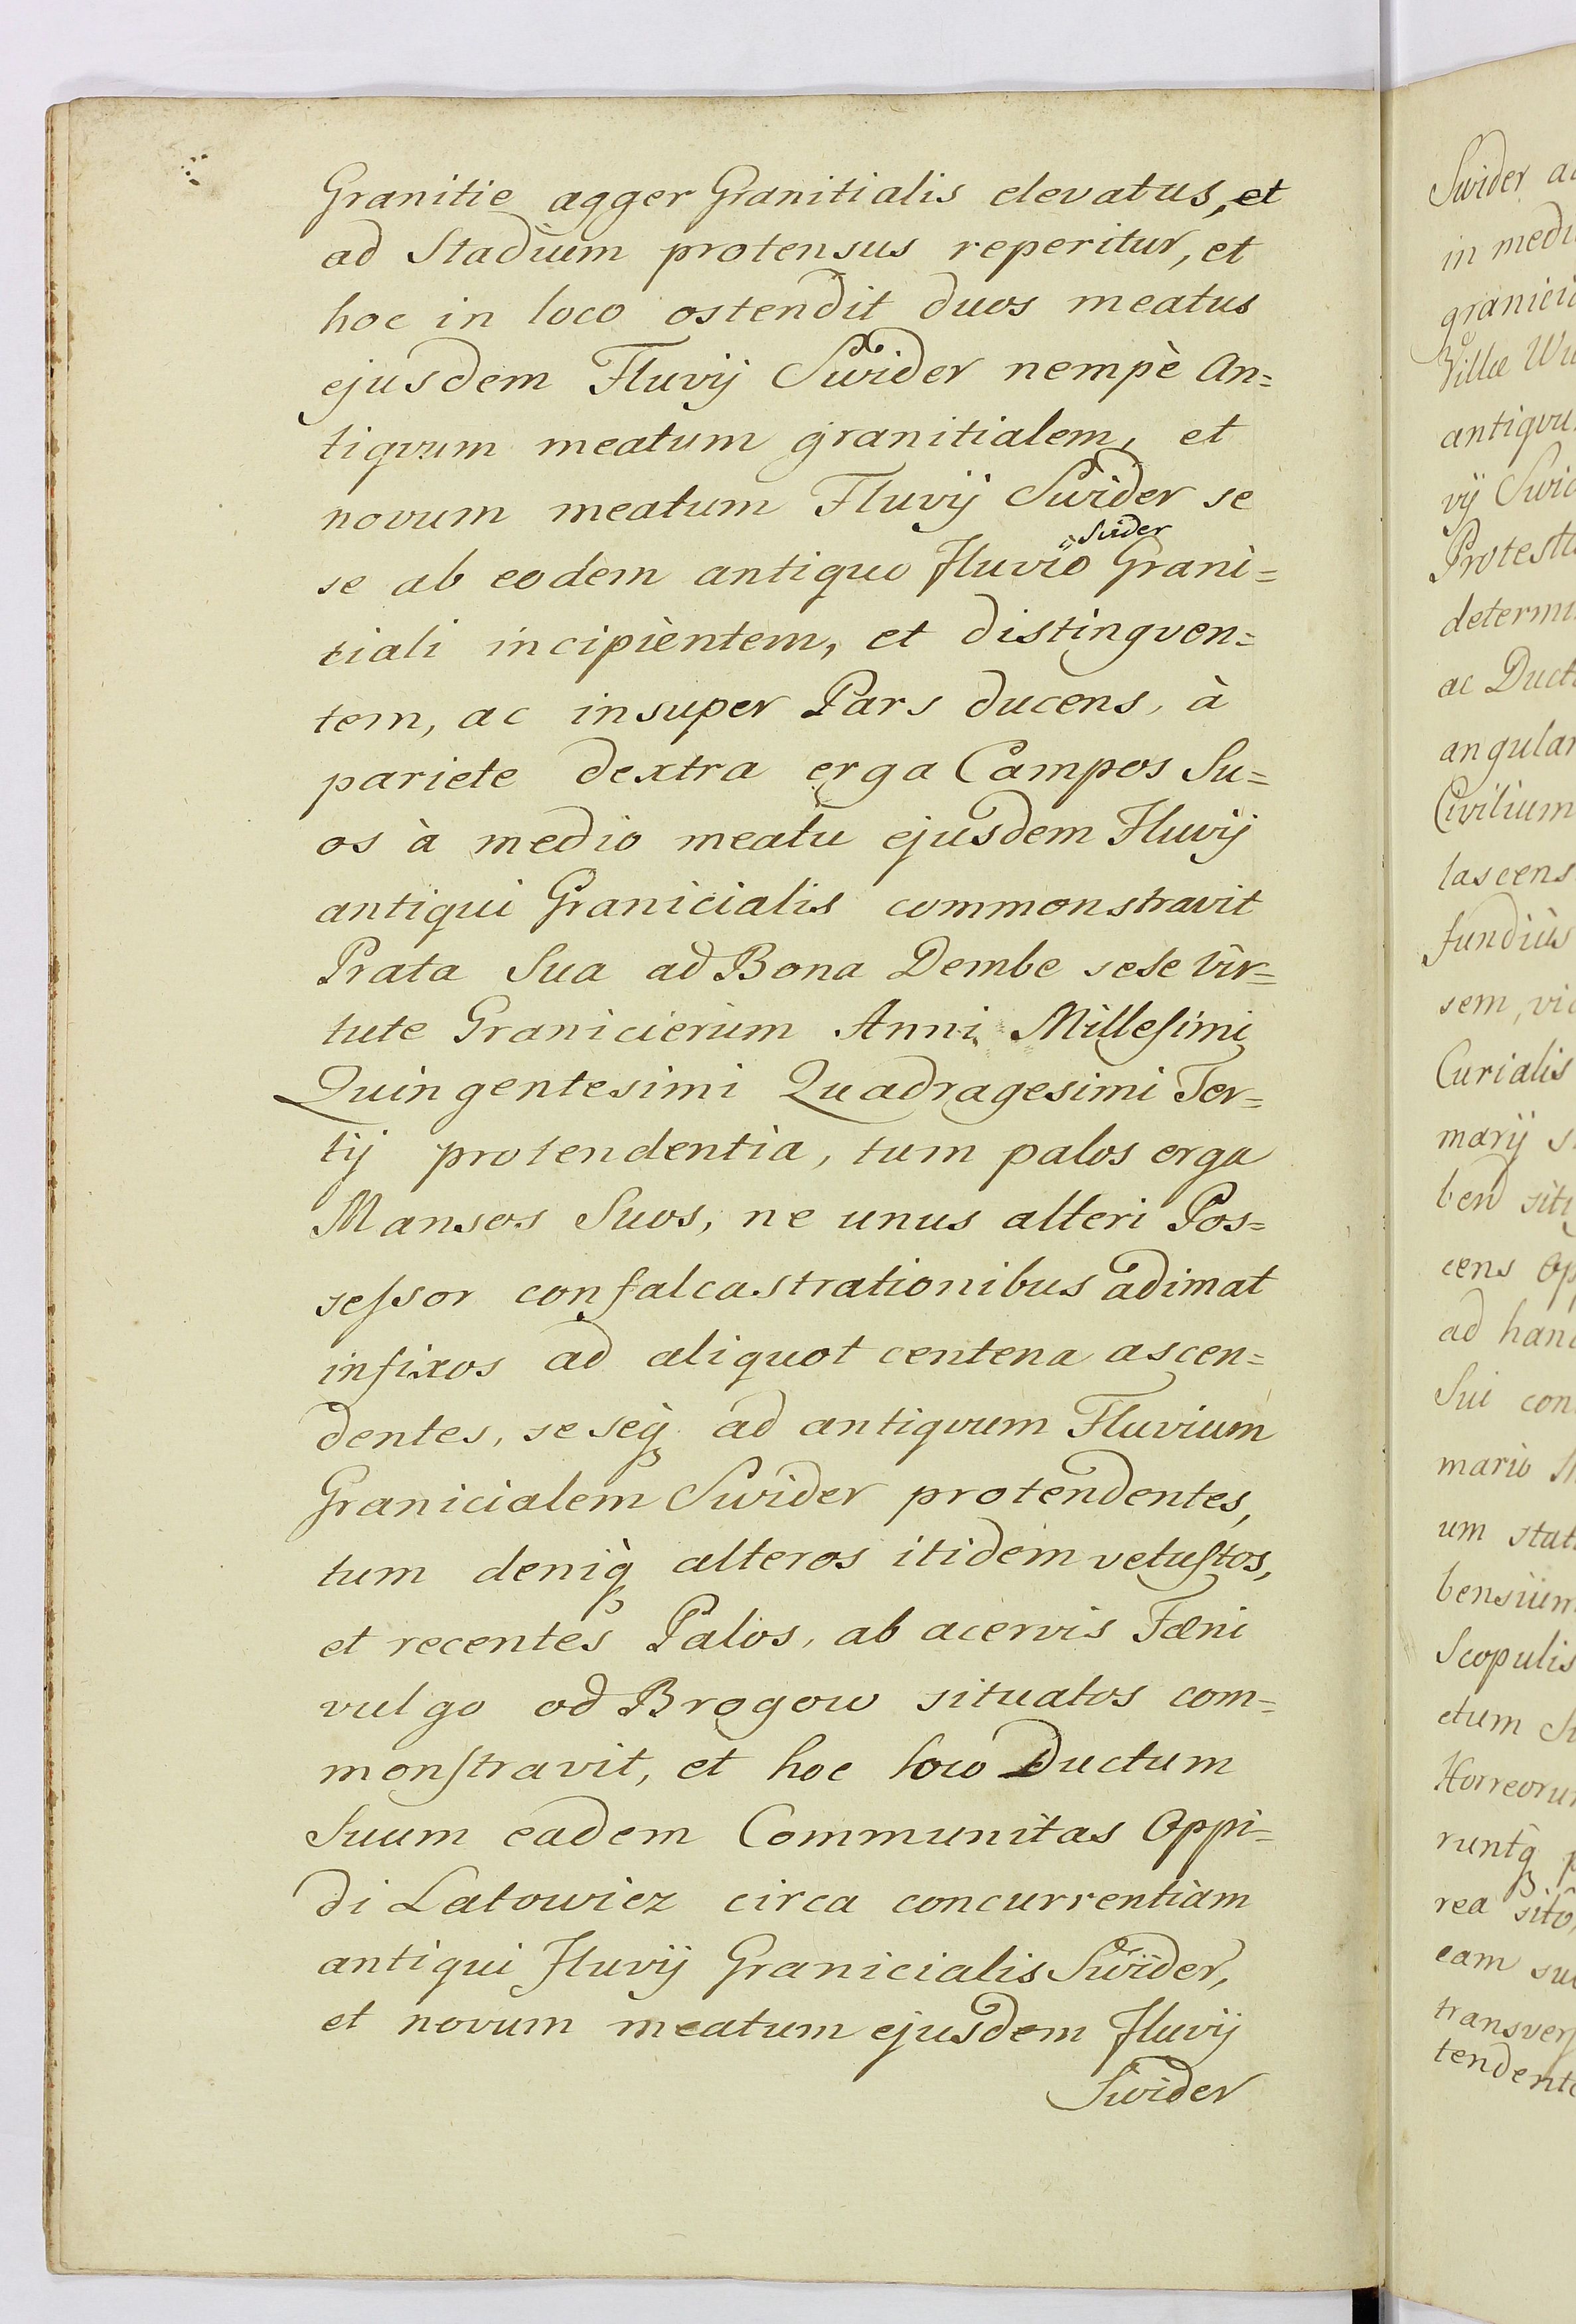 Granitie agger Granitialis elevatus, et
ad Stadium protensus reperitur, et
hoc in loco ostendit duos meatus
ejusdem Fluvij Swider nempè An=
tiqvum meatum granitialem, et
novum meatum Fluvij Swider se
Swider
se ab eodem antiquo Fluvio Grani=
tiali incipientem, et distingven=
tem, ac insuper Pars ducens, à
pariete dextra erga Campos Su=
os à medio meatu ejusdem Fluvij
antiqui Granicialis commonstravit
Prata Sua ad Bona Dembe sese vir=
tute Granicierum Anni Millesimi
Quingentesimi Quadragesimi Ter=
tij protendentia, tum palos erga
Mansos Suos, ne unus alteri Pos=
sessor confalcastrationibus adimat
infixos ad aliquot centena ascen=
dentes, seseq̀ ad antiqvum Fluvium
Granicialem Swider protendentes,
tum deniq̀ alteros itidem vetustos,
et recentes Palos, ab acervis Fæni
vulgo od Brogow situatos com=
monstravit, et hoc loco Ductum
Suum eadem Communitas Oppi=
di Latowicz circa concurrentiam
antiqui Fluvij Granicialis Swider,
et novum meatum ejusdem Fluvij
Swider
Swider
in
Villæ
vij
ac
Civilium
fundiùs
sem,
Curialis
marij
cens
ad
Sui
um
Scopulis
etum
runtq̀
rea sitô
eam